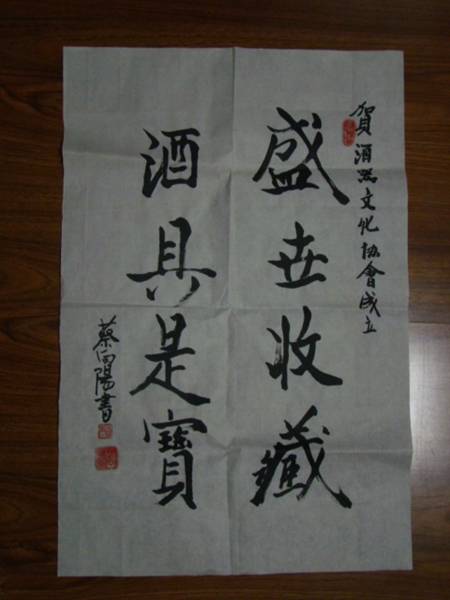 賀酒器文化协會成立
盛世收藏
酒具是寶
蔡向陽書